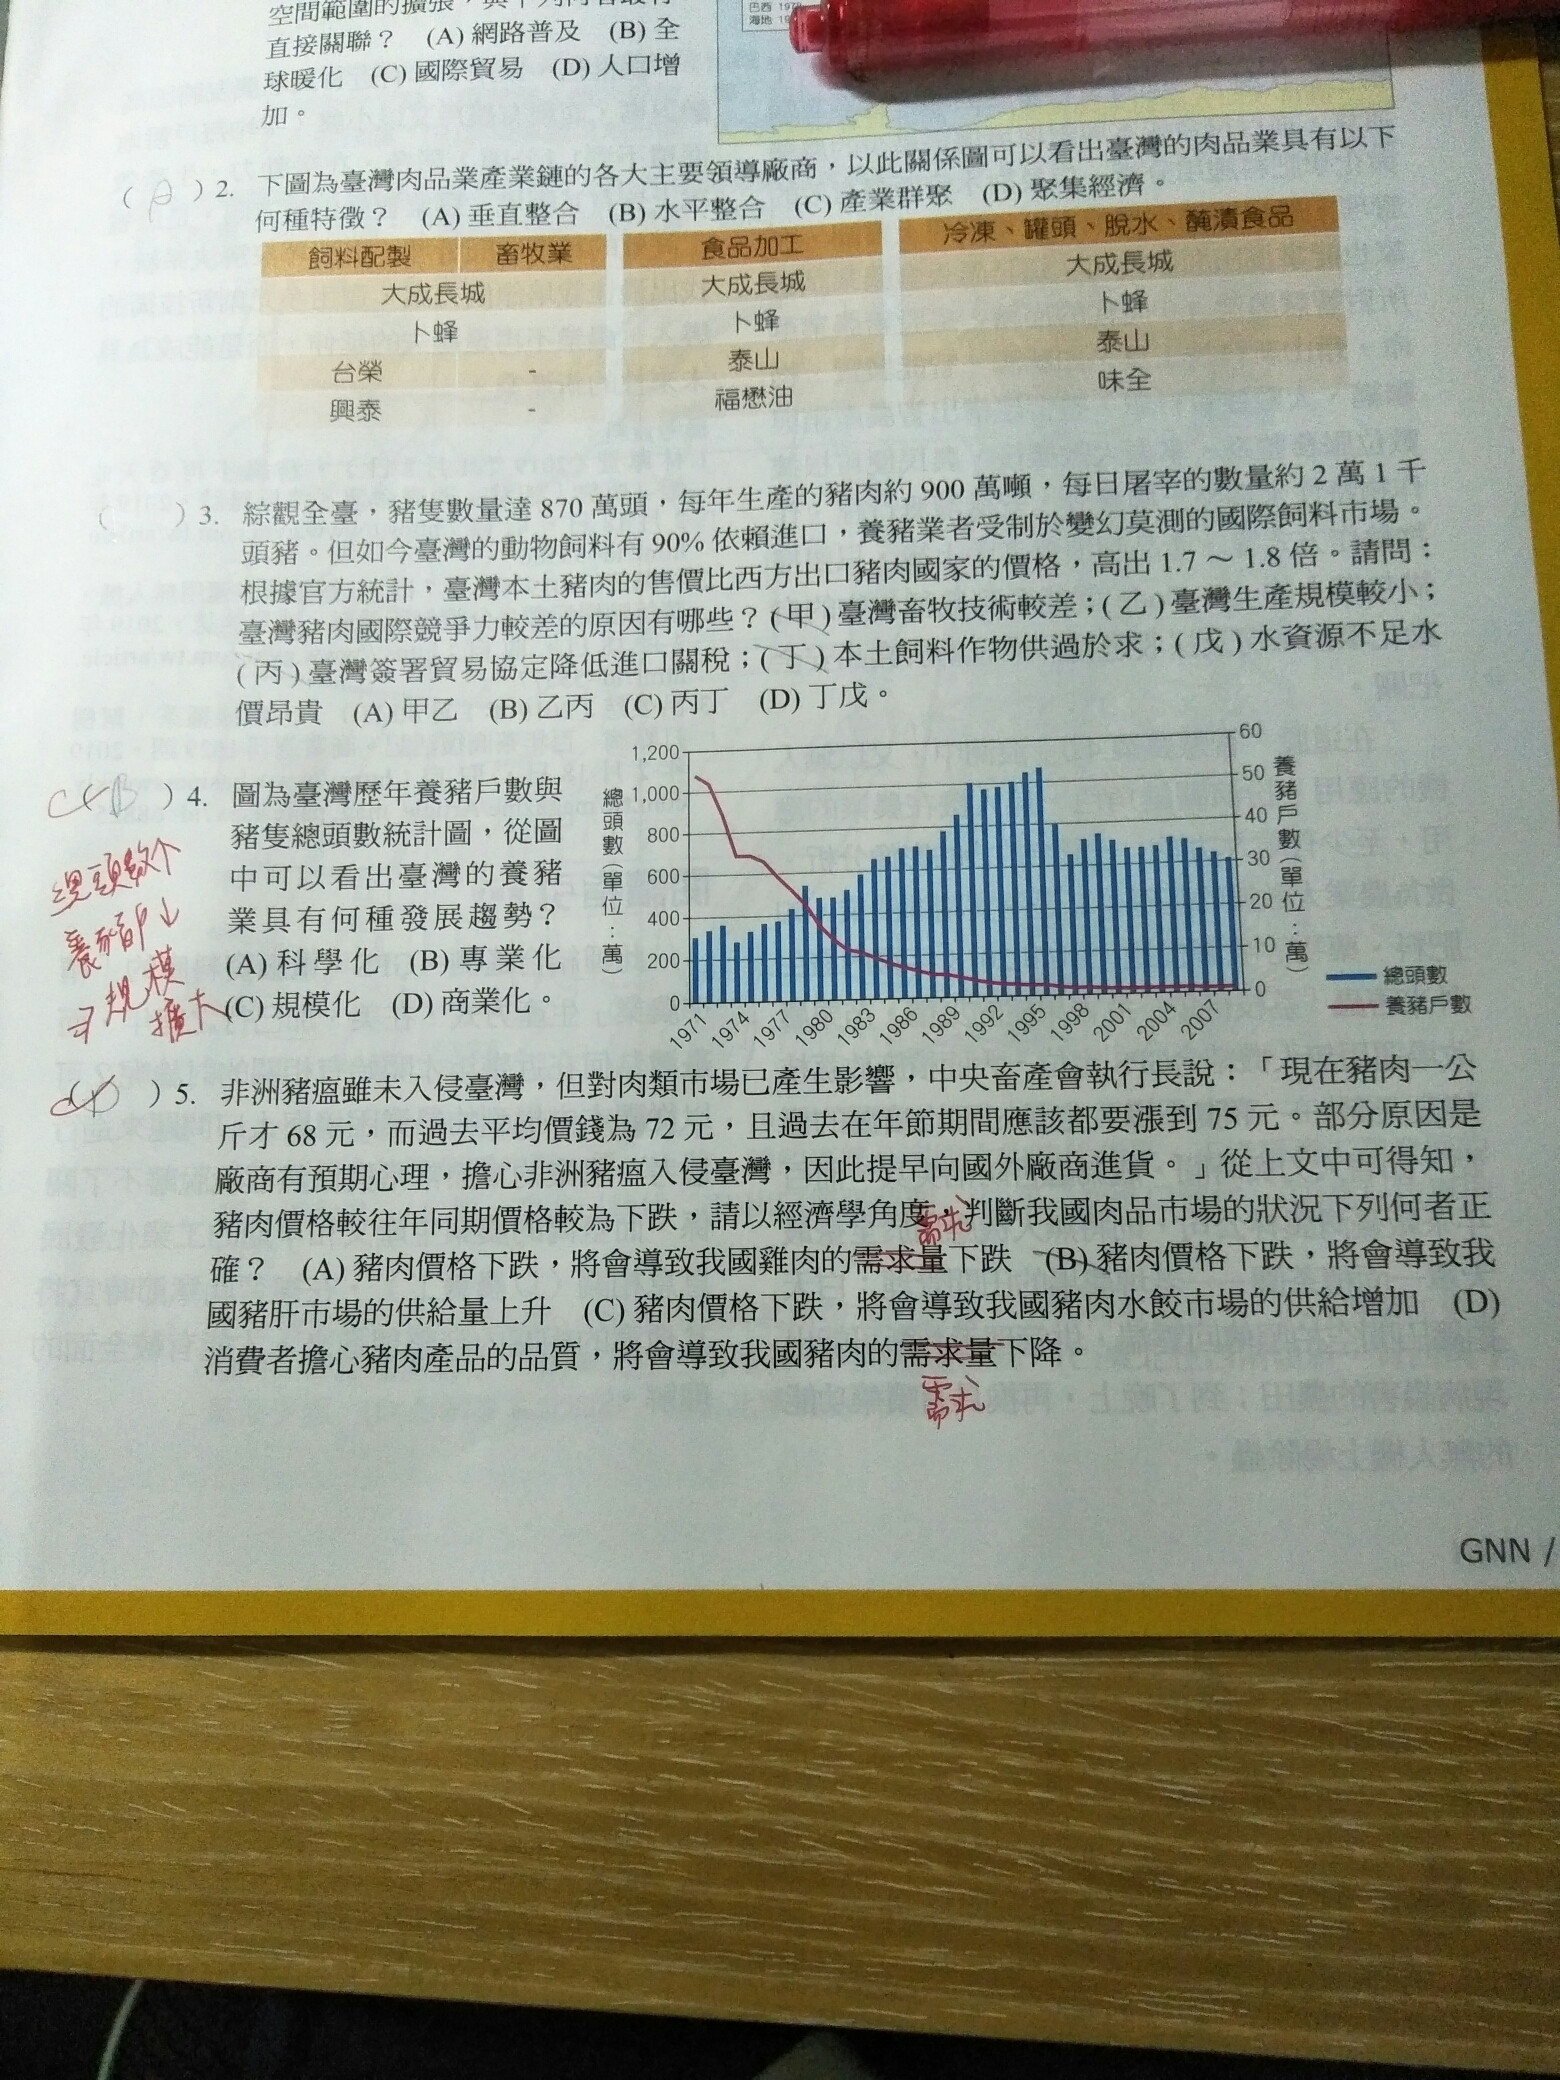 直接關聯? (A) 網路普及 (B) 全
球暖化 (C) 國際貿易 (D) 人口增
加。
(A)2. 下圖為臺灣肉品業產業鏈的各大主要領導廠商,以此關係圖可以看出臺灣的肉品業具有以下
何種特徵? (A) 垂直整合 (B) 水平整合 (C) 產業群聚 (D) 聚集經濟。
飼料配製 畜牧業 食品加工 冷凍、罐頭、脫水、醃漬食品
大成長城 大成長城 大成長城
卜蜂 卜蜂 卜蜂
台榮 - 泰山 泰山
興泰 - 福懋油 味全
( )3. 綜觀全臺,豬隻數量達 870 萬頭,每年生產的豬肉約 900 萬噸,每日屠宰的數量約 2 萬 1 千
頭豬。但如今臺灣的動物飼料有 90% 依賴進口,養豬業者受制於變幻莫測的國際飼料市場。
根據官方統計,臺灣本土豬肉的售價比西方出口豬肉國家的價格,高出 1.7 ~ 1.8 倍。請問:
臺灣豬肉國際競爭力較差的原因有哪些?(甲)臺灣畜牧技術較差;(乙)臺灣生產規模較小;
(丙)臺灣簽署貿易協定降低進口關稅;(丁)本土飼料作物供過於求;(戊)水資源不足水
價昂貴 (A) 甲乙 (B) 乙丙 (C) 丙丁 (D) 丁戊。
)4. 圖為臺灣歷年養豬戶數與
豬隻總頭數統計圖,從圖
中可以看出臺灣的養豬
業具有何種發展趨勢?
(A) 科學化 (B) 專業化
(C) 規模化 (D) 商業化。
總頭數↑
養豬戶↓
⇒規模
擴大
總頭數(單位:萬)
1,200
1,000
800
600
400
200
0
養豬戶數(單位:萬)
60
50
40
30
20
10
0
1971 1974 1977 1980 1983 1986 1989 1992 1995 1998 2001 2004 2007
總頭數
養豬戶數
)5. 非洲豬瘟雖未入侵臺灣,但對肉類市場已產生影響,中央畜產會執行長說:「現在豬肉一公
斤才 68 元,而過去平均價錢為 72 元,且過去在年節期間應該都要漲到 75 元。部分原因是
廠商有預期心理,擔心非洲豬瘟入侵臺灣,因此提早向國外廠商進貨。」從上文中可得知,
豬肉價格較往年同期價格較為下跌,請以經濟學角度,判斷我國肉品市場的狀況下列何者正
需求
確? (A) 豬肉價格下跌,將會導致我國雞肉的需求量下跌 (B) 豬肉價格下跌,將會導致我
國豬肝市場的供給量上升 (C) 豬肉價格下跌,將會導致我國豬肉水餃市場的供給增加 (D)
消費者擔心豬肉產品的品質,將會導致我國豬肉的需求量下降。
需求
GNN /